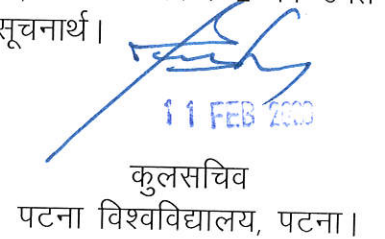 सूचनार्थ।
11 FEB
कुलसचिव
पटना विश्वविद्यालय, पटना।